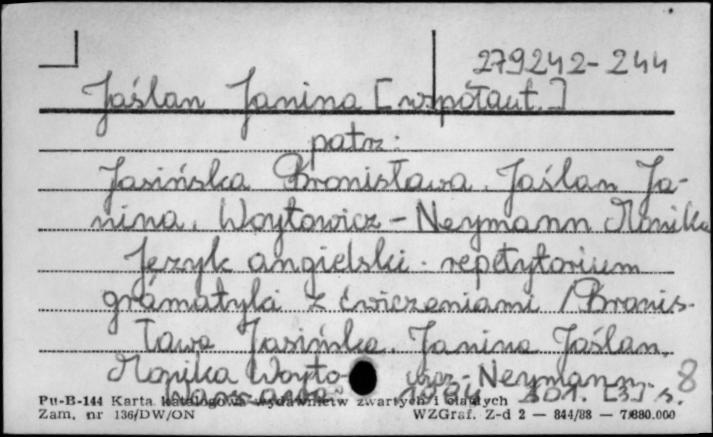 279242-244
Jaślan Janina [współaut.]
patrz:
Jasińska Bronisława, Jaślan Ja-
nina, Woytowicz - Neymann Monika
Język angielski : repetytorium
gramatyki z ćwiczeniami / Bronis-
ława Jasińska, Janina Jaślan,
Monika Woyto- wicz - Neymann.
Warszawa 1984 301, [3] s. 8
Pu-B-144 Karta katalogowa wydawnictw zwartych i ciągłych
Zam. nr 136/DW/ON WZGraf. Z-d 2 — 844/88 — 7.880.000